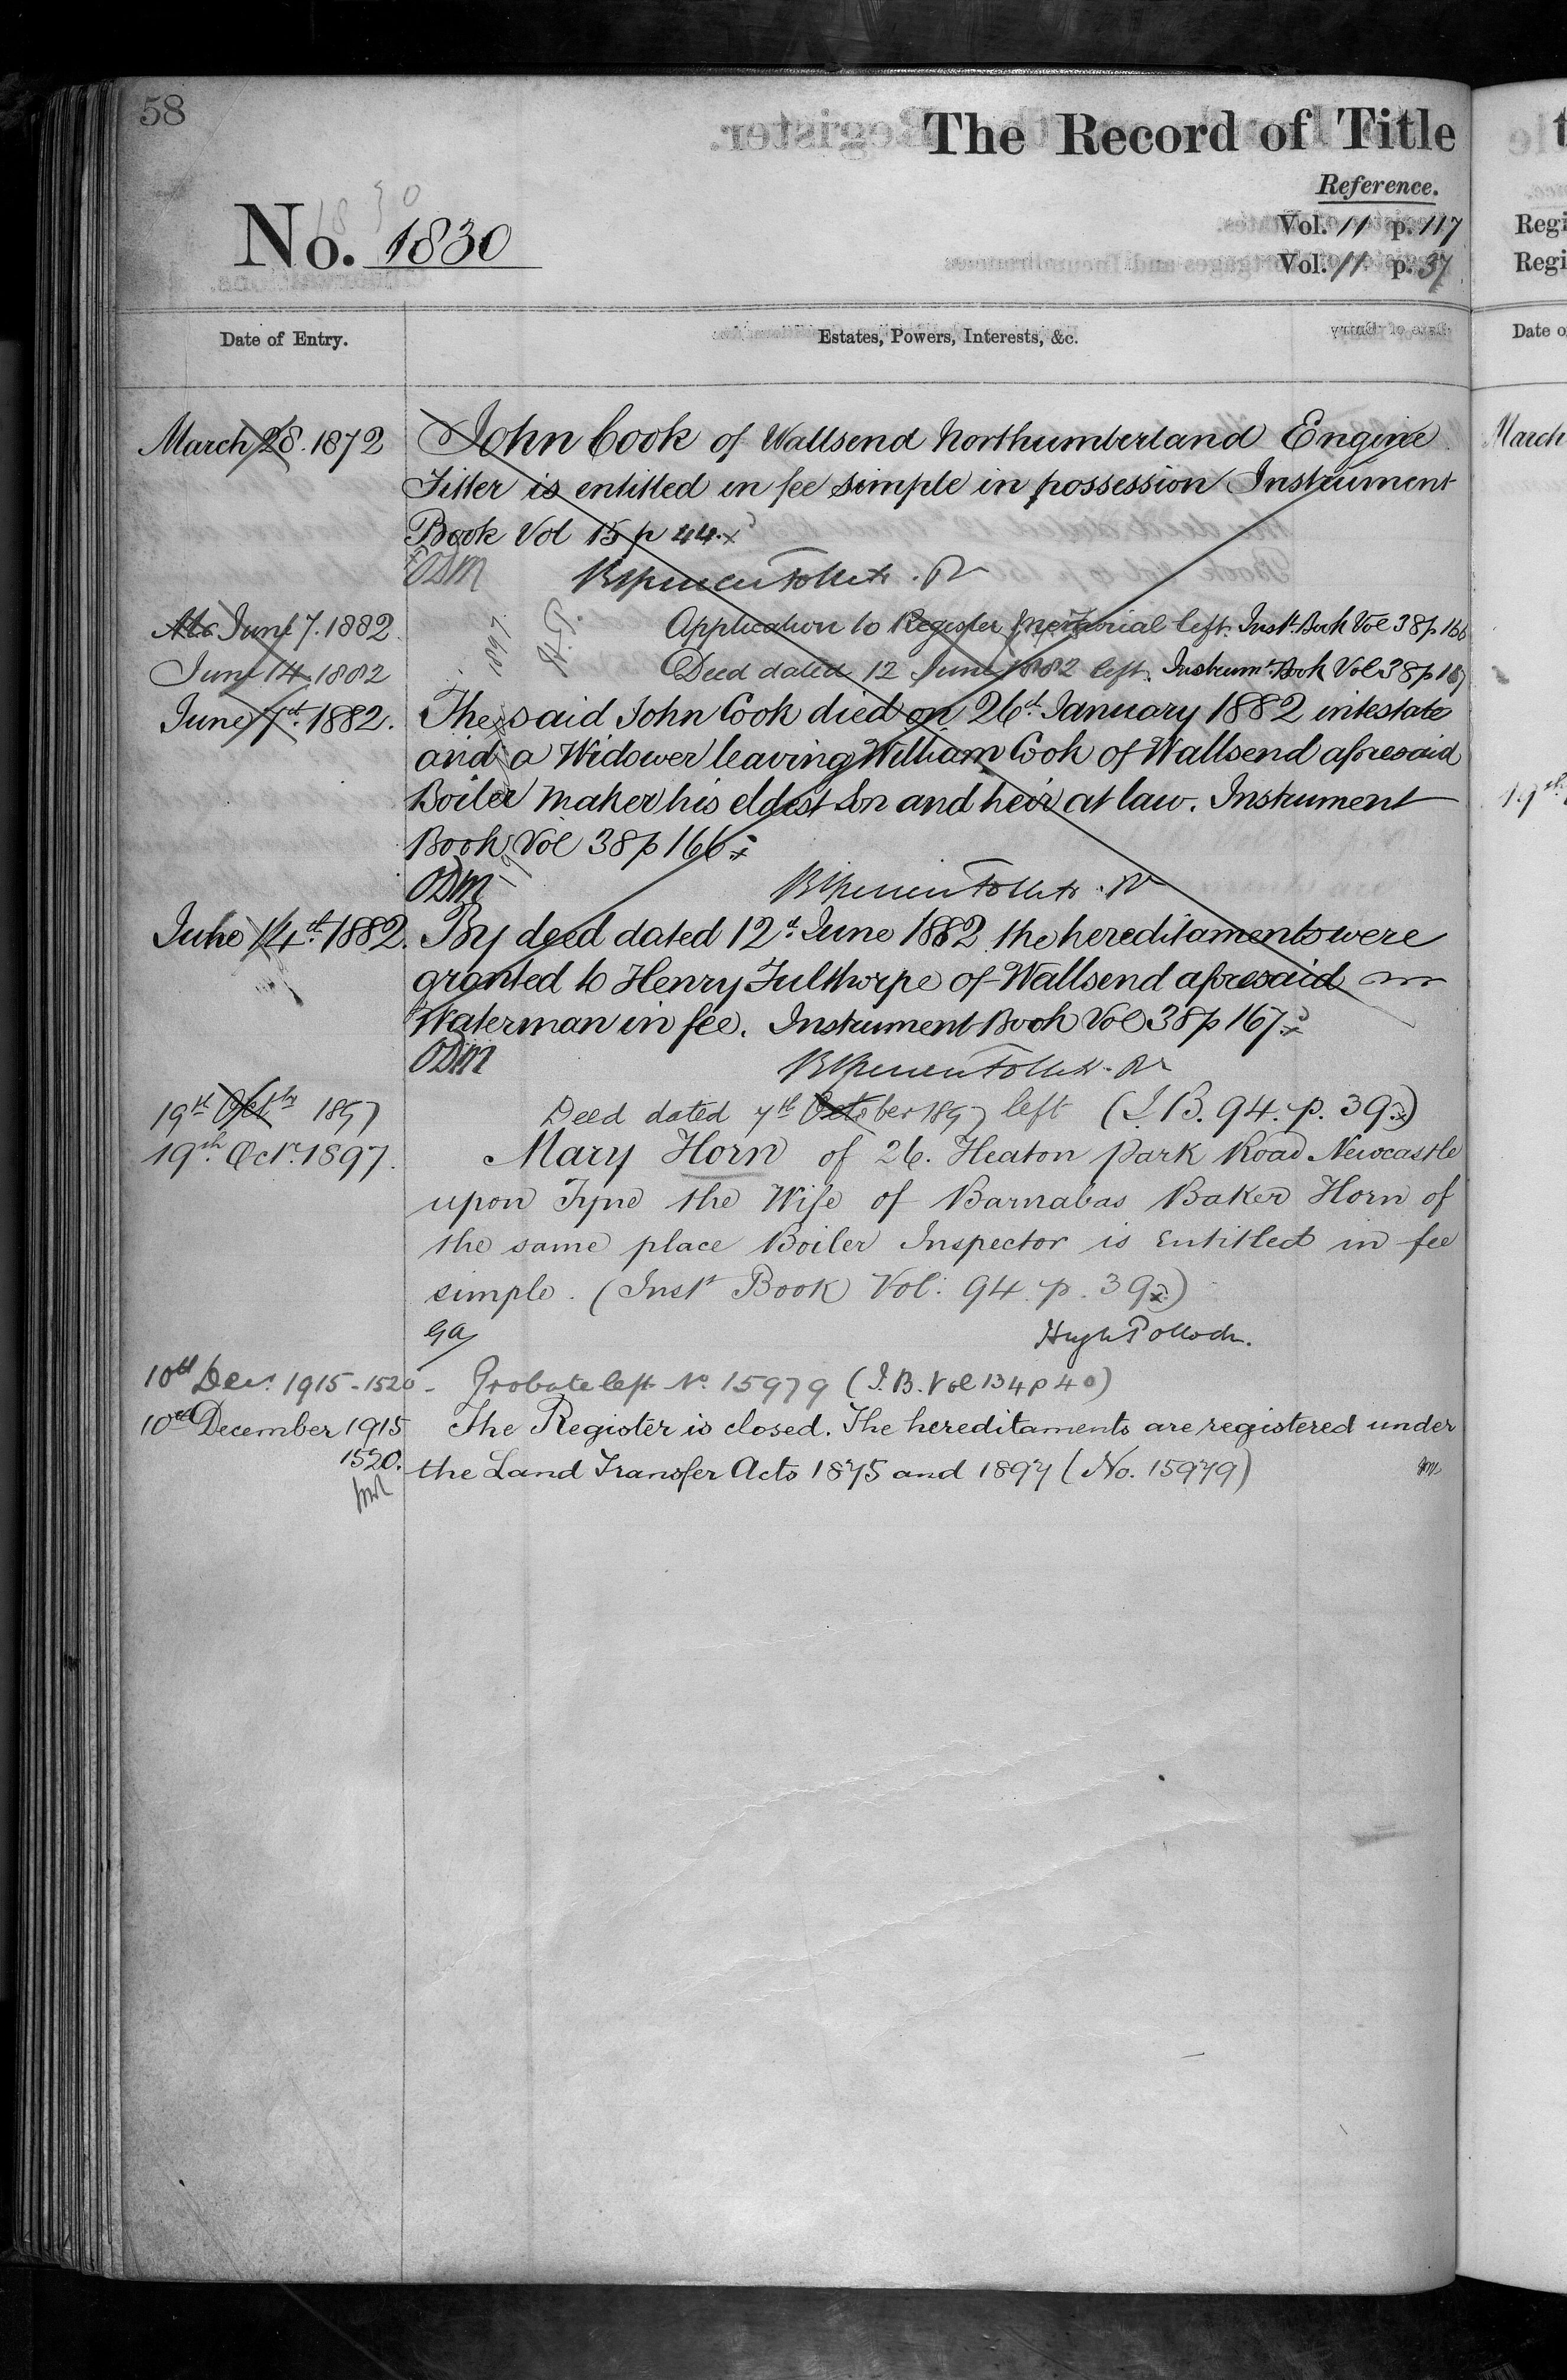 58
The Record of Title
Reference.
No. 1830
Vol. 11 p. 117
Vol. 11 p. 37
Date of Entry.
Estates, Powers, Interests, &c.
March 28. 1872
John Cook of Wallsend Northumberland Engine
Fitter is entitled in fee simple in possession Instrument
Book Vol 15 p 44.
ODM
June 7. 1882
Application to Register Memorial left. Inst. Book Vol 38 p 166
June 14. 1882
Deed dated 12 June 1882 left. Instrumt. Book Vol 38 p 167
June 7th. 1882.
The said John Cook died on 26th. January 1882 intestate
and a Widower leaving William Cook of Wallsend aforesaid
Boiler maker his eldest Son and heir at law. Instrument
Book Vol 38 p 166
ODM
June 14th. 1882.
By deed dated 12th. June 1882 the hereditaments were
granted to Henry Fulthorpe of Wallsend aforesaid
Waterman in fee. Instrument Book Vol 38 p 167
ODM
19th 1897
Deed dated 7th October 1897 left (I.B. 94. p. 39)
19th. Octr. 1897.
Mary Horn of 26. Heaton Park Road Newcastle
upon Tyne the Wife of Barnabas Baker Horn of
the same place Boiler Inspector is Entitled in fee
simple. (Inst Book Vol: 94. p. 39)
GA
Hugh Pollock.
10th Decr. 1915 - 1520 -
Probate left No. 15979 (I.B. Vol 134 p 40)
10th December 1915
The Register is closed. The hereditaments are registered under
1520.
the Land Transfer Acts 1875 and 1897 (No. 15979)
Regi
Regi
Date o
March